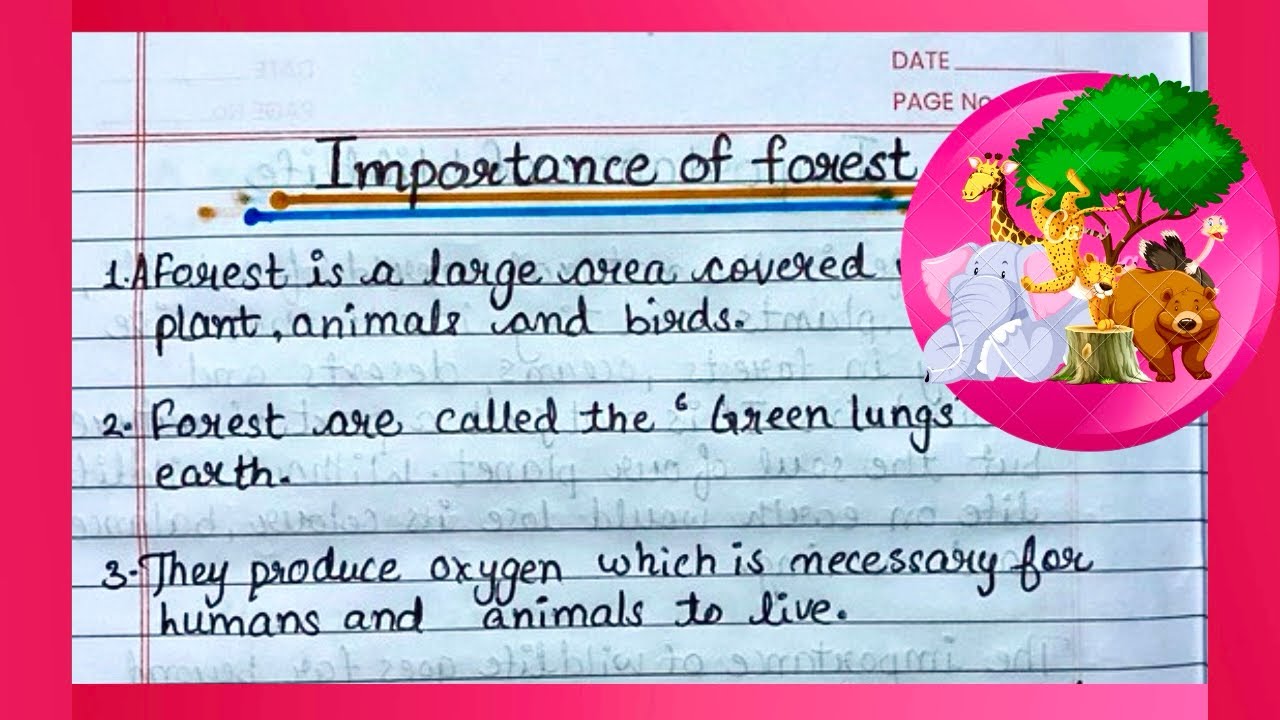 DATE
PAGE No
Importance of forest
1. A Forest is a large area covered
plant, animals and birds.
2. Forest are called the ‘Green lungs’
earth.
3. They produce oxygen which is necessary for
humans and animals to live.